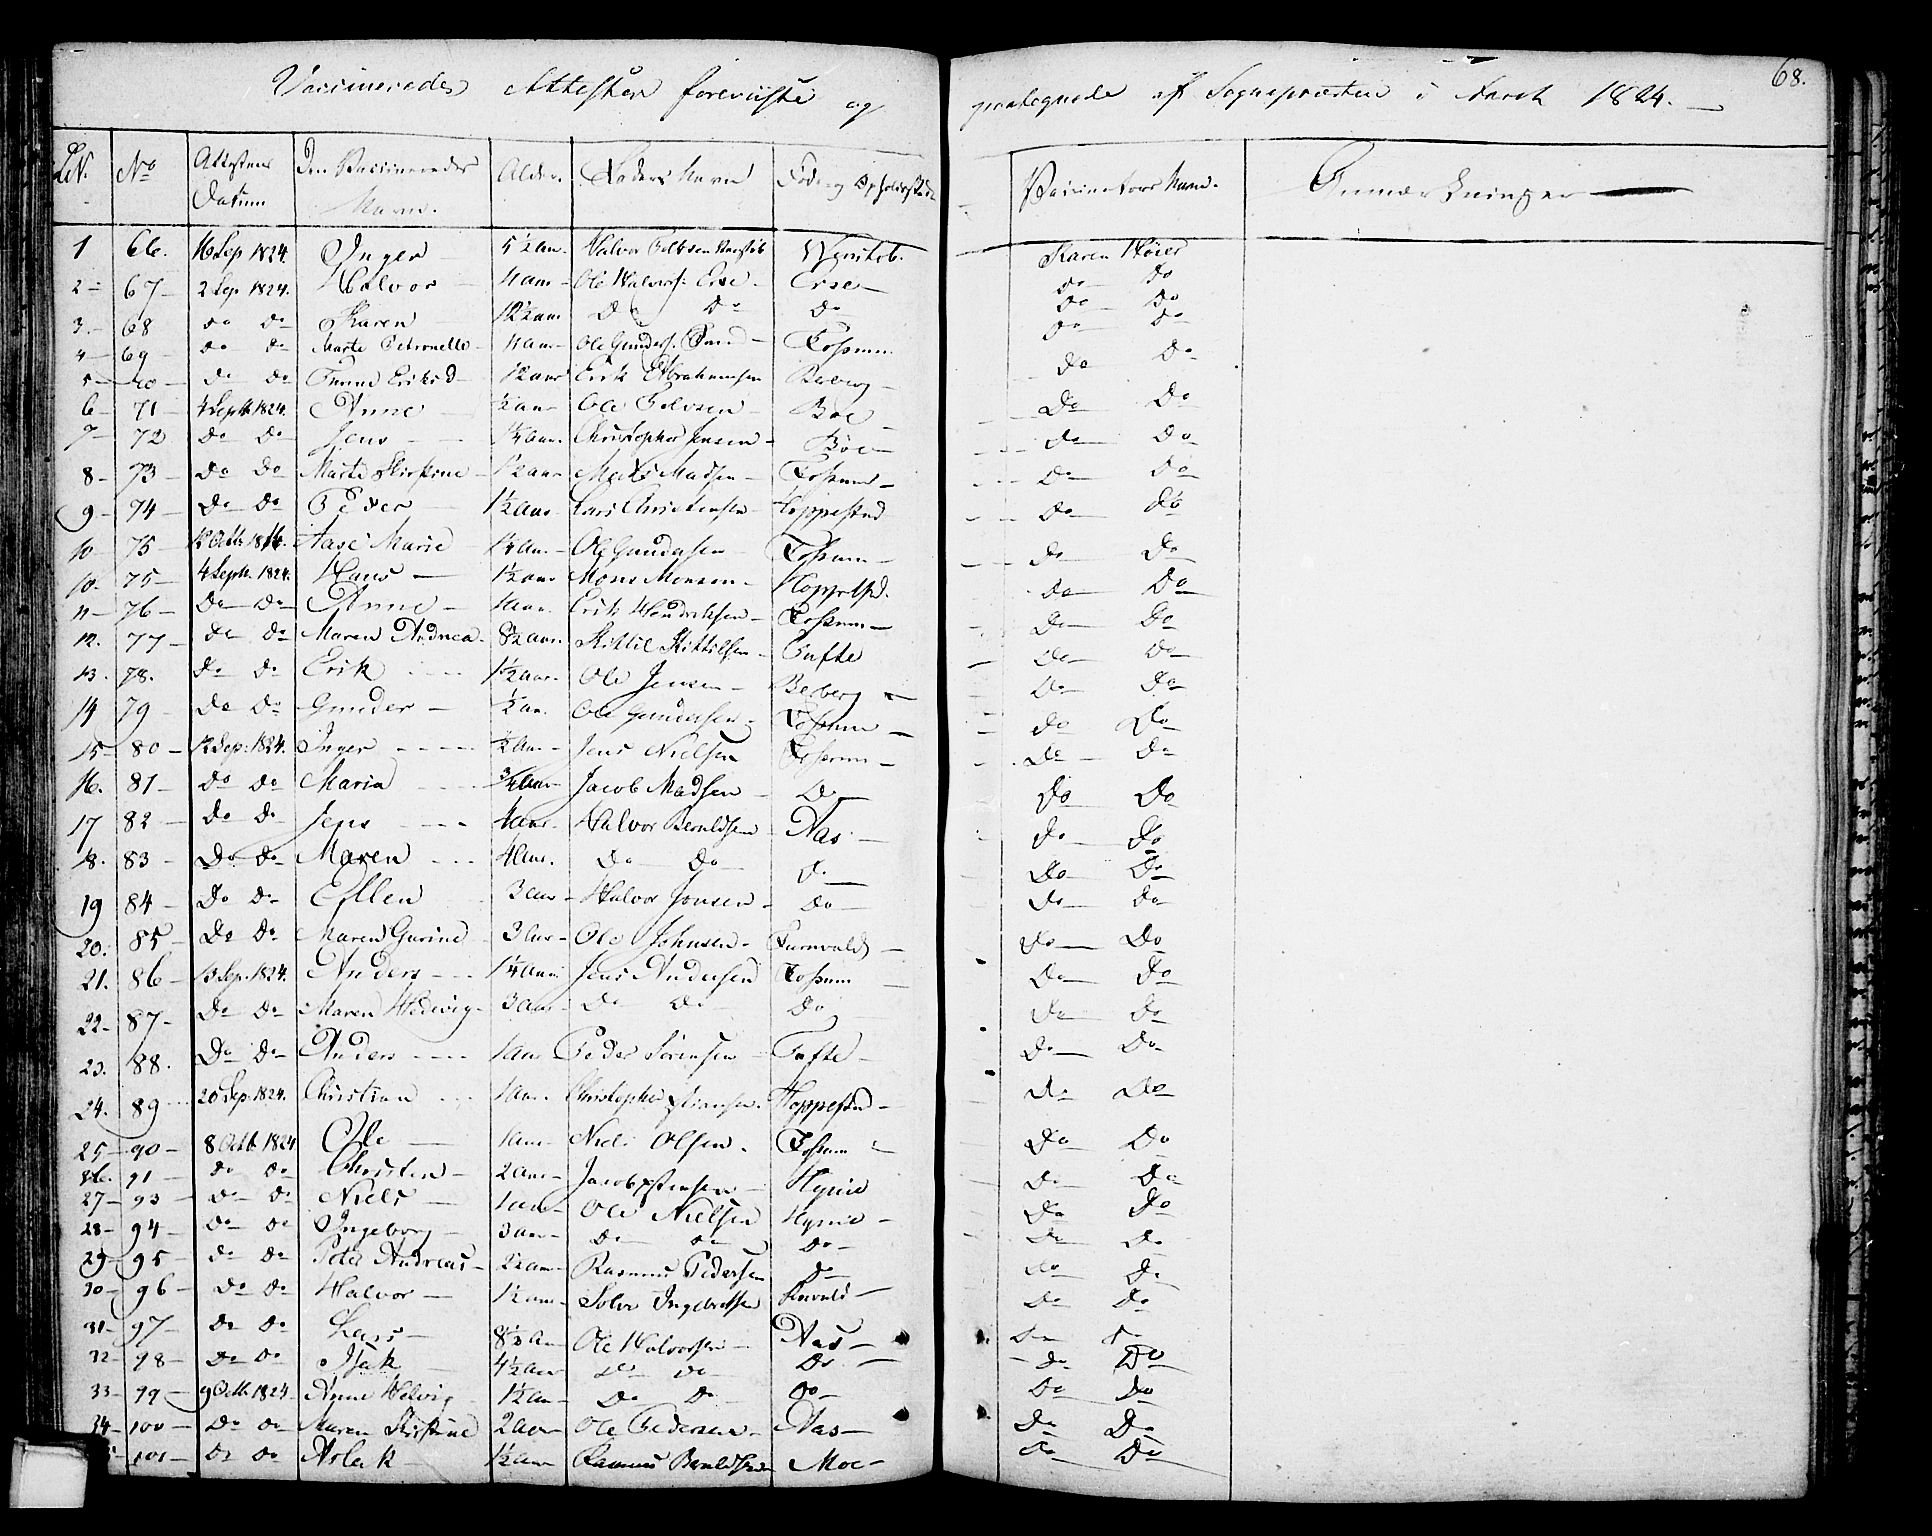 68.
Vaccineredes Attester foreviiste og paategnede af Sognepræsten i Aaret 1824.
LN. No Attestens Datum Den Vaccineredes Navn. Alder. Faders Navn Føde og Opholdssted Vaccinateurs Navn. Anmærkninger
1 66. 16 Sep 1824. Inger 5½ aar. Halvor Karen Høier
2 67 2 Sep 1824. Halvor 4 aar Ole Halvors: Erse Erse do Do
3. 68 do Do Karen 12½ aar Do Do Do Do Do
4 69 do Do Marte Petronelle 4 aar Ole Gunders. Fossum do Do
5 70 do Do Eriksd 12 aar Erik Abrahamsen Berberg do Do
6 71 4 Septb 1824. Anne ½ aar Ole Boe Do Do
7 72 Do Do Jens 1¼ aar Christopher Jensen Böe Do Do
8 73 Do Do Marte Kirstine 1½ aar Mads Madsen Fossum Do Do
9 74 Do Do Peder 1½ aar Lars Christensen Hoppestad Do Do
10 75 12 Octb 1816. Aase Marie 1¼ aar Ole Gundersen Fossum Do Do
10. 75 4 Septb. 1824. Hans 1½ aar Mons Monsen Hoppestd. Do Do
11 76 Do Do Anne 1 aar. Erik Hendriksen Fossum Do Do
12. 77 Do Do Maren Andrea 8½ aar. Kittil Kittilsen Tufte Do Do
13. 78. Do Do Erik 1½ aar. Ole Jensen Berberg Do Do
14 79 Do Do Gunder ½ aar. Ole Gundersen Fossum do Do
15 80 12 Sep: 1824. Inger ½ aar Jens Nielsen Fossum Do Do
16. 81 Do Do Maria ¾ aar Jacob Madsen Do Do Do
17 82 Do Do Jens 1 aar Halvor Beruldsen Aas Do Do
18. 83 Do Do Maren 4 aar. Do Do Do Do Do
19 84 Do Do Ellen 3 aar Halvor Jonsen Do Do Do
20. 85 Do Do Maren Gurine 3 aar Ole Johnsen Do Do
21. 86 13 Sep. 1824. Anders 1¼ aar Jens Andersen Fossum Do Do
22 87 Do Do Maren Hedevig 3 aar Do Do Do Do Do
23. 88. Do Do Anders 1 aar Peder Sörensen Tufte Do Do
24. 89 20 Sep: 1824. Christian 1 aar. Christopher Hoppestad Do Do
25 90 8 Octb. 1824 Ole 1 aar Niels Olsen Fossum Do Do
26. 91 Do Do Christen 2 aar Jacob Hynie Do Do
27 93 Do Do Niels 1 aar Ole Nielsen Hynie Do Do
28 94 Do Do Ingeborg 3 aar Do Do Do Do Do
29 95 Do Do Peter Andreas 2½ aar Rasmus Pedersen Do Do Do
30 96 Do Do Halvor 1½ aar Solve Ingebretsen Do Do
31 97 Do Do Lars 8½ aar Ole Halvorsen Aas Do Do
32 98 Do Do Isak 4½ aar Do Do Do Do Do
33 99 9 Octb 1824 Anne Helvig 1½ aar Do Do Do Do Do
34 100 Do Do Maren Kirstine 2 aar Ole Pedersen Aas Do Do
101 Do Do Aslak 1½ aar Rasmus Beruldsen Moe Do Do